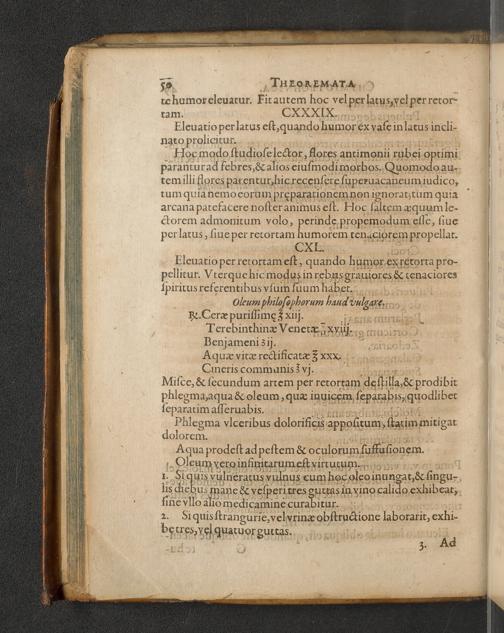 50 THEOREMATA
te humor eleuatur. Fit autem hoc vel per latus, vel per retor-
tam. CXXXIX.
Eleuatio per latus est, quando humor ex vase in latus incli-
nato prolicitur.
Hoc modo studiose lector, flores antimonii rubei optimi
parantur ad febres, & alios eiusmodi morbos. Quomodo au-
tem illi flores parentur, hic recensere superuacaneum iudico,
tum quia nemo eorum præparationem non ignorat, tum quia
arcana patefacere noster animus est. Hoc saltem æquum le-
ctorem admonitum volo, perinde propemodum esse, siue
per latus, siue per retortam humorem tenaciorem propellat.
CXL.
Eleuatio per retortam est, quando humor ex retorta pro-
pellitur. Vterque hic modus in rebus grauiores & tenaciores
spiritus referentibus vsum suum habet.
Oleum philosophorum haud vulgare.
℞. Ceræ purissimę ℥ xiij.
Terebinthinæ Venetæ ℥ xviij.
Benjameni ʒ ij.
Aquæ vitæ rectificatæ ℥ xxx.
Cineris communis ℥ vj.
Misce, & secundum artem per retortam destilla, & prodibit
phlegma, aqua & oleum, quæ inuicem separabis, quodlibet
separatim asseruabis.
Phlegma vlceribus dolorificis appositum, statim mitigat
dolorem.
Aqua prodest ad pestem & oculorum suffusionem.
Oleum vero infinitarum est virtutum.
1. Si quis vulneratus vulnus cum hoc oleo inungat, & singu-
lis diebus mane & vesperi tres guttas in vino calido exhibeat,
sine vllo alio medicamine curabitur.
2. Si quis strangurię, vel vrinæ obstructione laborarit, exhi-
be tres, vel quatuor guttas.
3. Ad